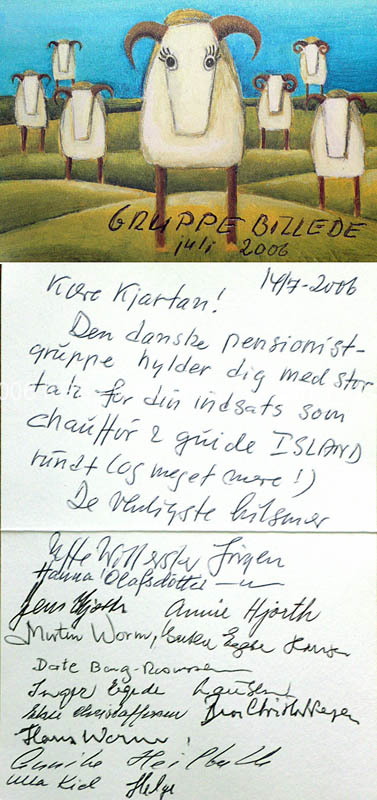 GRUPPE BILLEDE
juli 2006
14/7-2006
Kære Kjartan!
Den danske pensionist-
gruppe hylder dig med stor
tak for din indsats som
chauffør & guide ISLAND
rundt (og meget mere!)
De venligste hilsner
Jørgen
Hanna Olafsdottir
Jens Hjorth Annie Hjorth
Morten Worm,
Dorte Bang-Rasmussen
Inger Egede
Elsie Christoffersen
Hans Worm
Annike Heilbuth
Ulla Kiel Helge